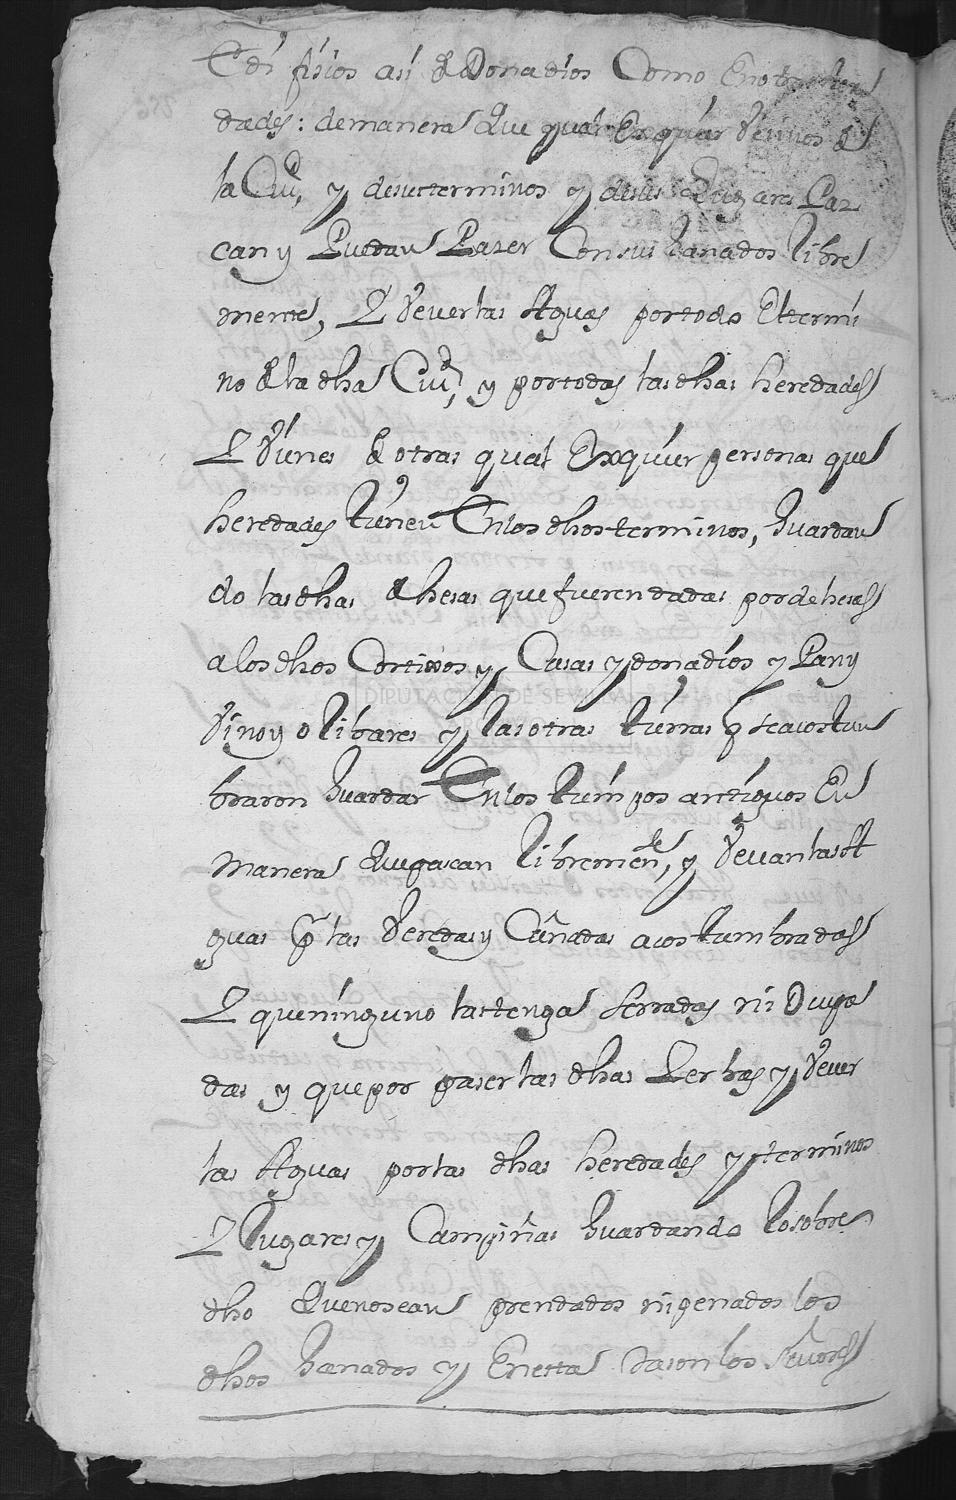 Edifisios asi de Donadios Como En otras here
dades: de manera que qual Ex quier Vecinos de
la Ciud, y desus terminos y desus Lugares Paz
can y Puedan Pazer Con sus Ganados libre
mente, E Vever las Aguas por todo El termi
no de la dha Ciud, y por todas las dhas heredades
E Vienes de otras qual Ex quier personas que
heredades tienen En los dhos terminos, Guardan
do las dhas dehesas que fueren dadas por dehesas
a los dhos Cortixos y Casas y donadios y Pan y
Vino y olibares y las otras tierras q se acostun
braron Guardar En los tiempos antiguos En
manera que pascan libremente, y Vevan las A
guas por las Veredas y Cañadas acostumbradas
E que ninguno las tenga Serradas ni Ocupa
das y que por paser las dhas Yerbas y Vever
las Aguas por las dhas heredades y terminos
E lugares y Campiñas Guardando lo sobre
dho que no sean prendados ni penados los
dhos Ganados y En esta Rason los Señores
DIPUTACIÓN DE SEVILLA